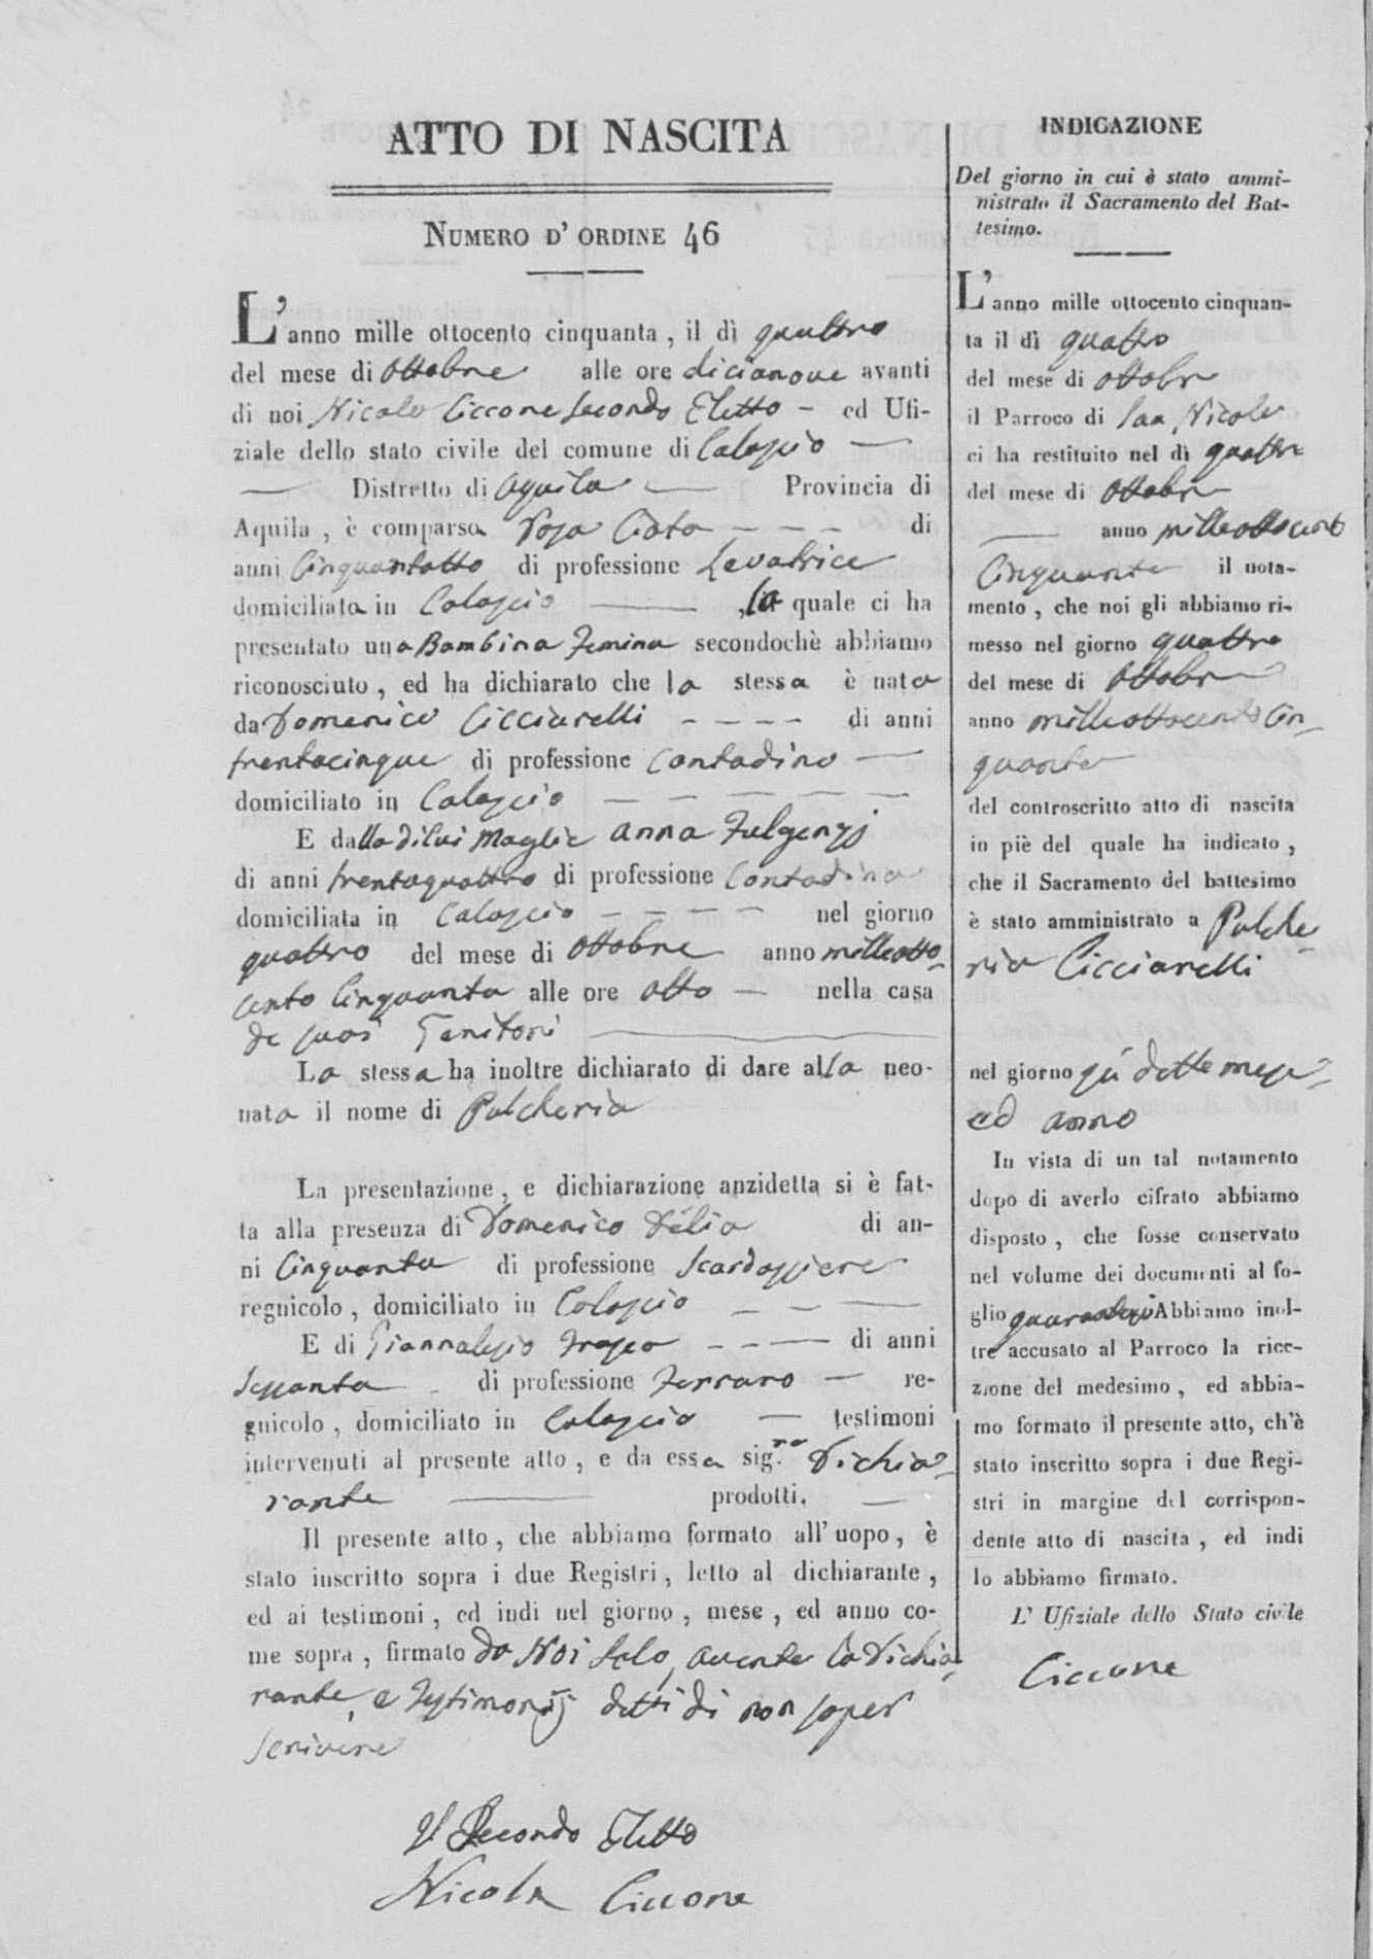 ATTO DI NASCITA
NUMERO D' ORDINE 46
L'anno mille ottocento cinquanta, il dì quattro
del mese di Ottobre alle ore dicianove avanti
di noi Nicola Ciccone Secondo Eletto – ed Ufi-
ziale dello stato civile del comune di Calascio —
— Distretto di Aquila — Provincia di
Aquila, è comparsa Rosa Ciota – – – di
anni Cinquantotto di professione Levatrice
domiciliata in Calascio — , la quale ci ha
presentato una Bambina Femina secondochè abbiamo
riconosciuto, ed ha dichiarato che la stessa è nata
da Domenico Cicciarelli – – – – di anni
trentacinque di professione Contadino —
domiciliato in Calascio — – – – – –
E dalla di lui Moglie Anna Fulgenzj
di anni trentaquattro di professione Contadina
domiciliata in Calascio – – – – nel giorno
quattro del mese di Ottobre anno milleotto-
cento Cinquanta alle ore otto — nella casa
de suoi Genitori
La stessa ha inoltre dichiarato di dare alla neo-
nata il nome di Pulcheria
La presentazione, e dichiarazione anzidetta si è fat-
ta alla presenza di Domenico Délia di an-
ni Cinquanta di professione Scardassiere
regnicolo, domiciliato in Calascio – – —
E di Giannalesio – – – — di anni
Sessanta di professione Ferraro — re-
gnicolo, domiciliato in Calascio — testimoni
intervenuti al presente atto, e da essa sig.ra Dichia-
rante — prodotti. —
Il presente atto, che abbiamo formato all' uopo, è
stato inscritto sopra i due Registri, letto al dichiarante,
ed ai testimoni, ed indi nel giorno, mese, ed anno co-
me sopra, firmato da Noi Solo, avente la Dichia-
rante, e Testimonij detti di non saper
scrivere
Il Secondo Eletto
Nicola Ciccone
INDICAZIONE
Del giorno in cui è stato ammi-
nistrato il Sacramento del Bat-
tesimo.
L'anno mille ottocento cinquan-
ta il dì quattro
del mese di Ottobre
il Parroco di San Nicola
ci ha restituito nel dì quattro
del mese di Ottobre
— anno milleottocento
Cinquanta il nota-
mento, che noi gli abbiamo ri-
messo nel giorno quattro
del mese di Ottobre
anno milleottocento Cin-
quanta
del controscritto atto di nascita
in piè del quale ha indicato,
che il Sacramento del battesimo
è stato amministrato a Pulche-
ria Cicciarelli
nel giorno già detto mese
ed anno
In vista di un tal notamento
dopo di averlo cifrato abbiamo
disposto, che fosse conservato
nel volume dei documenti al fo-
glio quarantasei Abbiamo inol-
tre accusato al Parroco la rice-
zione del medesimo, ed abbia-
mo formato il presente atto, ch'è
stato inscritto sopra i due Regi-
stri in margine del corrispon-
dente atto di nascita, ed indi
lo abbiamo firmato.
L' Ufiziale dello Stato civile
Ciccone